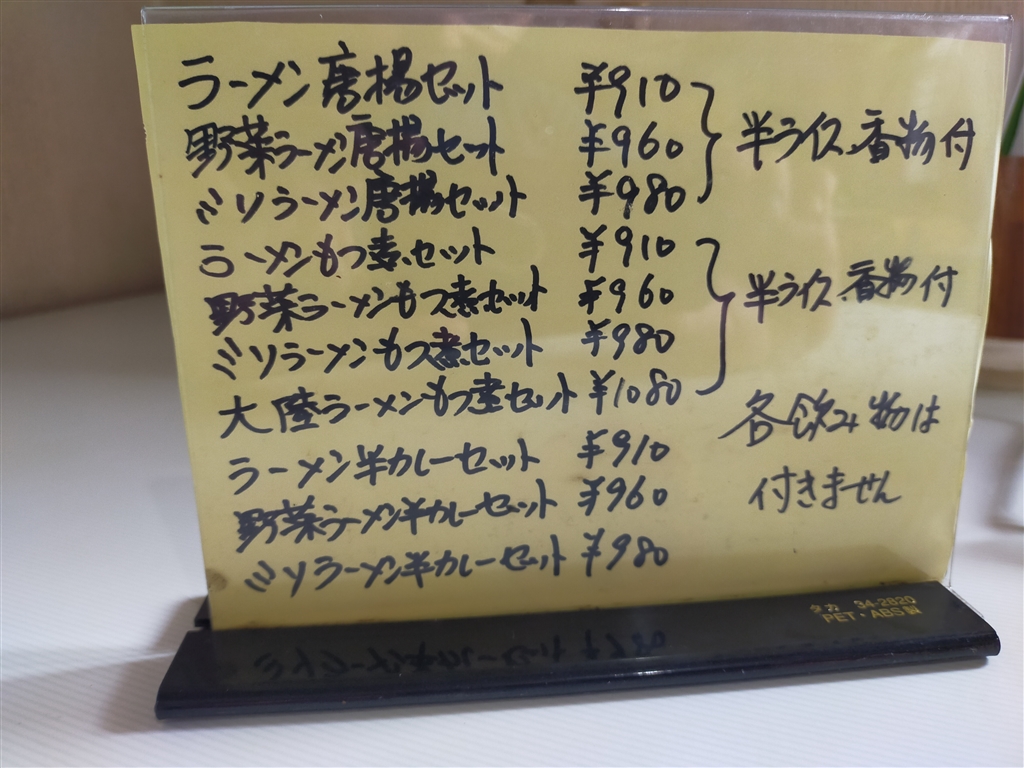 ラーメン唐揚セット ¥910
野菜ラーメン唐揚セット ¥960
ミソラーメン唐揚セット ¥980
半ライス、香物付
ラーメンもつ煮セット ¥910
野菜ラーメンもつ煮セット ¥960
ミソラーメンもつ煮セット ¥980
大陸ラーメンもつ煮セット ¥1080
半ライス、香物付
ラーメン半カレーセット ¥910
野菜ラーメン半カレーセット ¥960
ミソラーメン半カレーセット ¥980
各飲み物は
付きません
タカ 34-2820
PET・ABS製